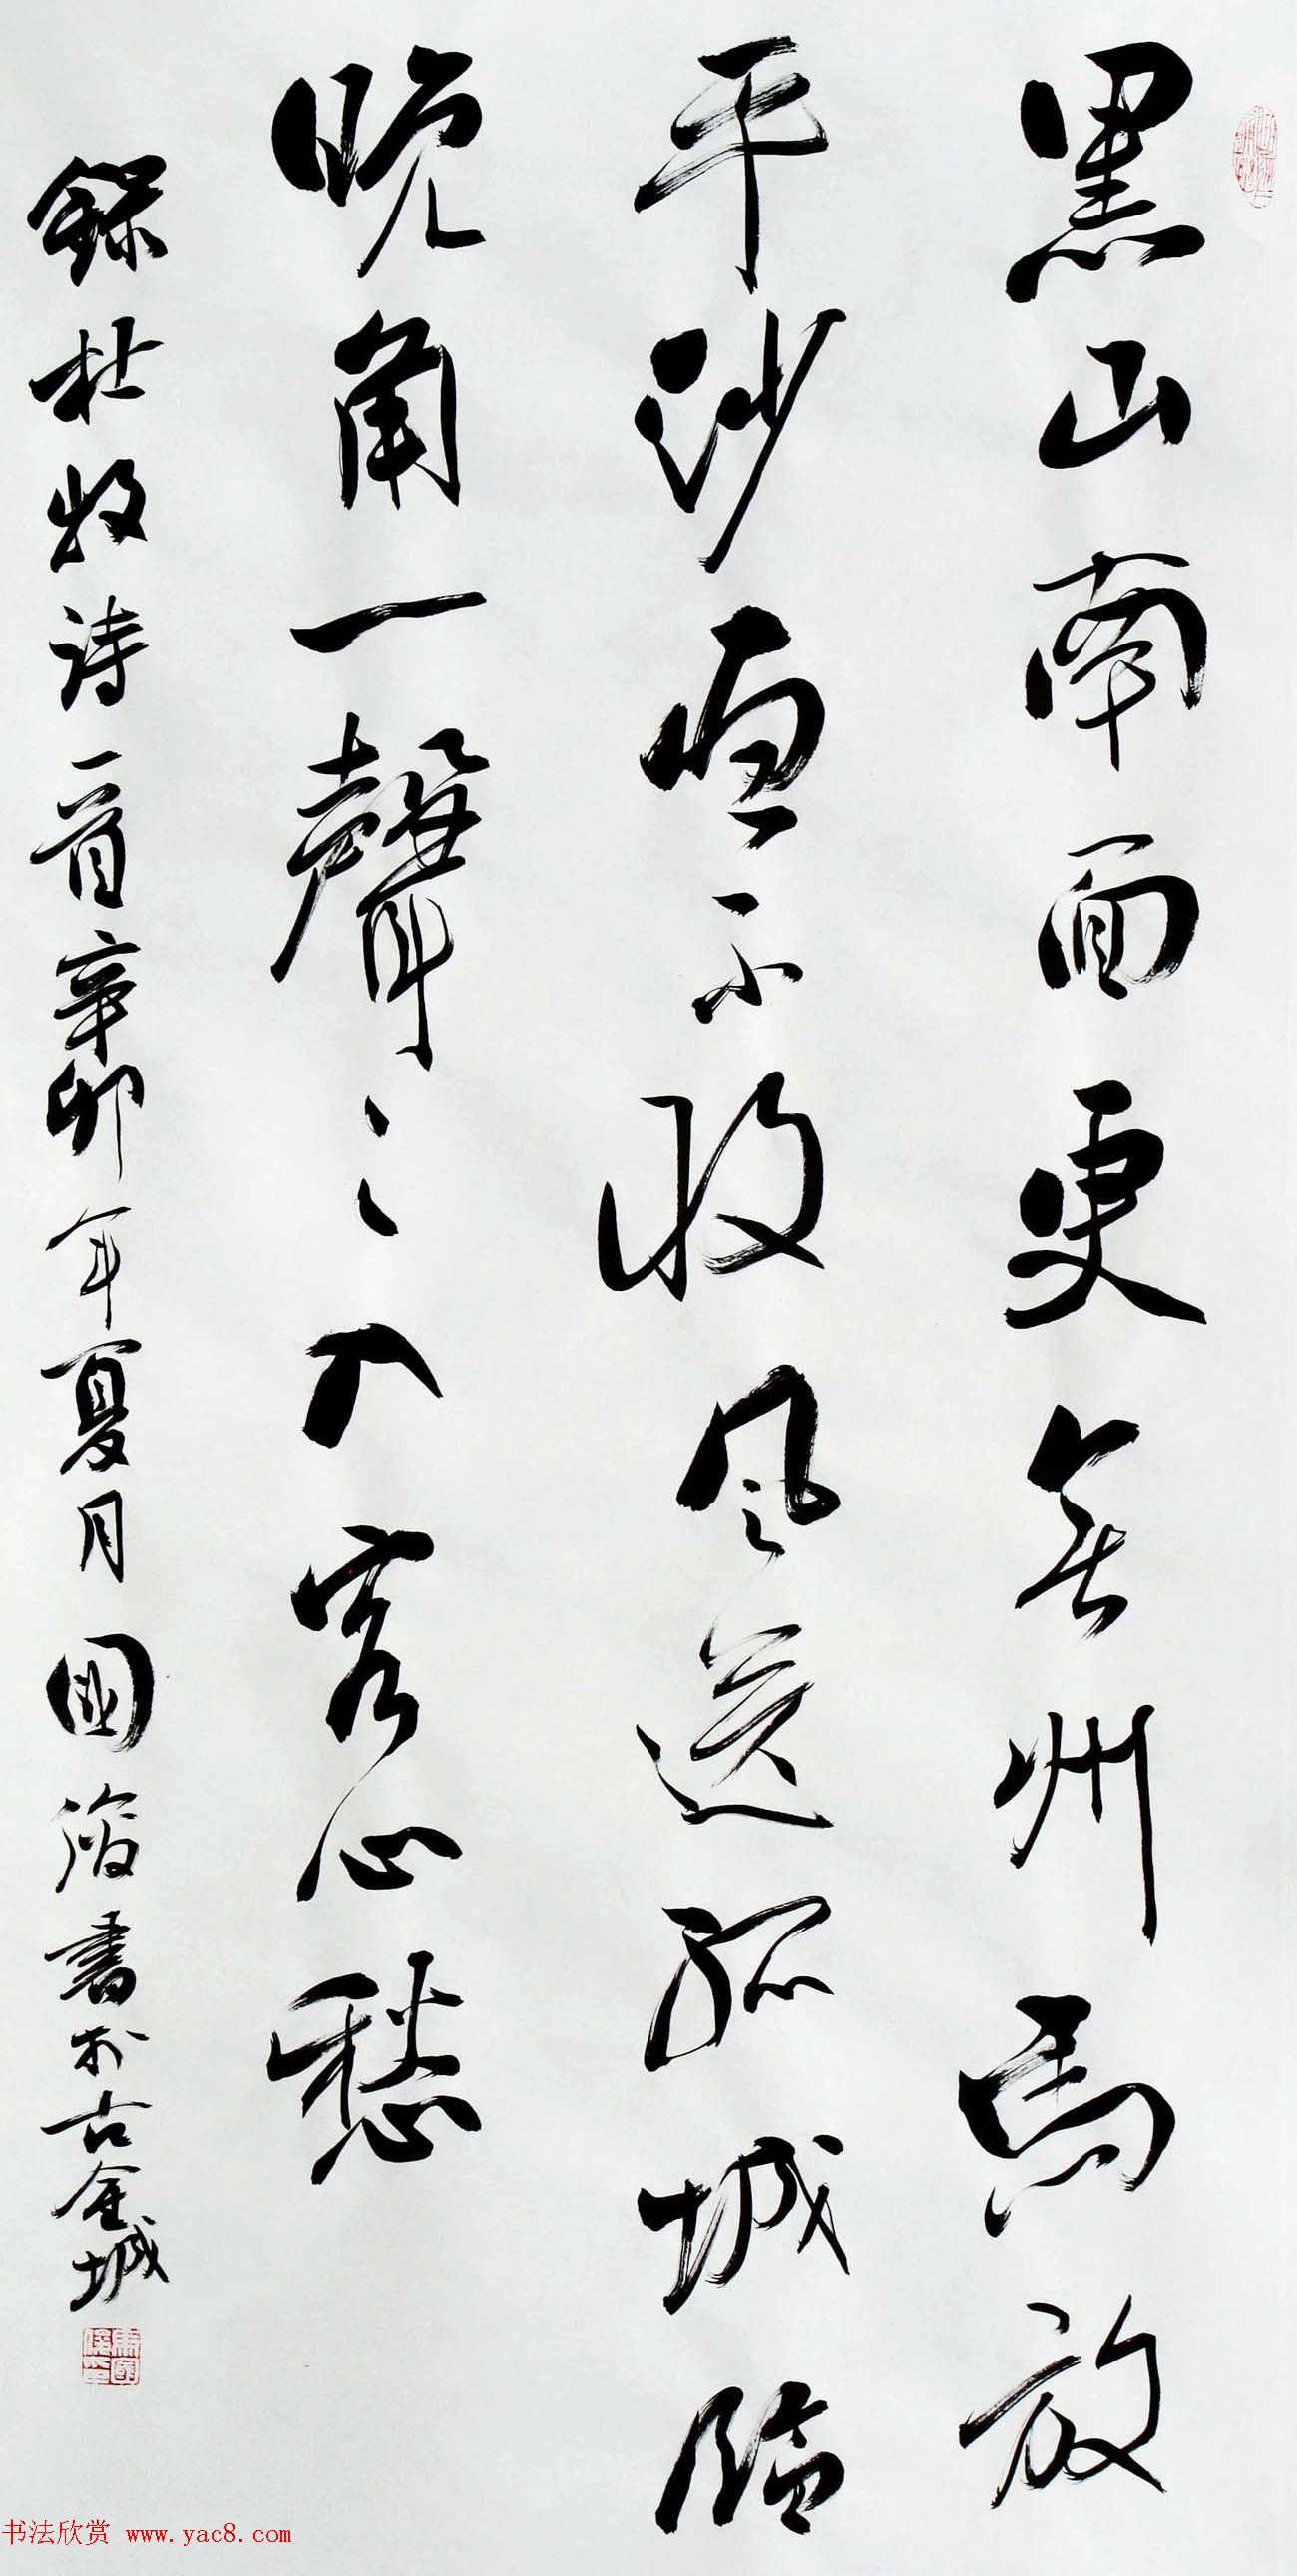 黑山南面更無州馬放
平沙夜不收風送孤城臨
晚角一聲々入客心愁
錄杜牧詩一首辛卯年夏月國俊書於古金城
书法欣赏 www.yac8.com